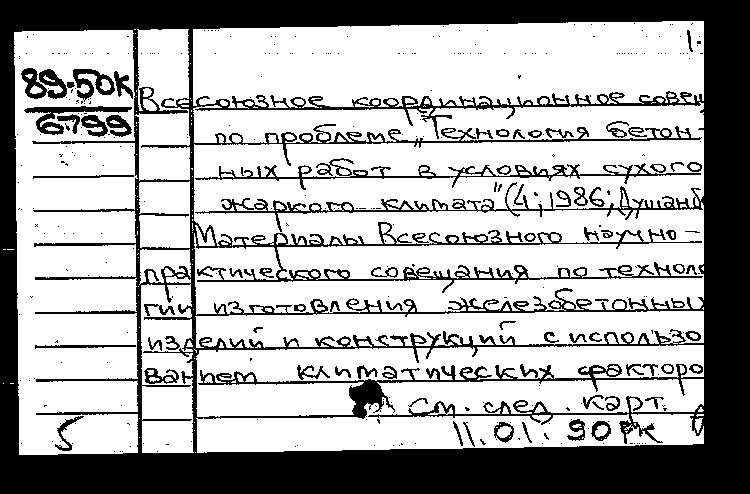 1.
89-50К
6799
Всесоюзное координационное совещ
по проблеме „Технология бетон-
ных работ в условиях сухого
жаркого климата" (4; 1986; Душанб
Материалы Всесоюзного научно-
практического совещания по техноло
гии изготовления железобетонных
изделий и конструкций с использо
ванием климатических факторо
См. след. карт.
5
11.01.90 РК